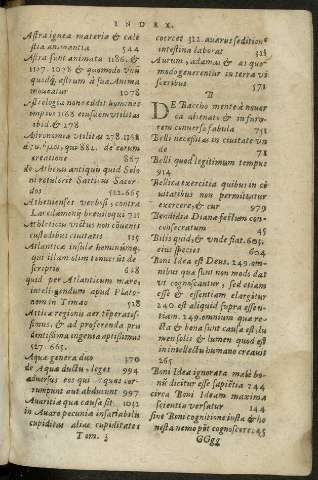 INDEX.
Astra ignea materia & cælestia
stia animantia 544
Astra sunt animata 1186. &
1107. 1078 & quomodo vnũ
quidq; astrum à sua Anima
moueatur 1078
Astrologia non reddit homines
impios 1168 eiusdem vtilitas
ibid. & 278
Astronomiæ vtilitas 278. 1168
creatione 867
de Atheniensi antiquis quid Solo
ni retulerit Saitius Sacer
dos 512. 665
Athenienses verbosi, contra
Lacedæmonij breuiloqui 721
Athletica victus non conuenit
custodibus ciuitatis 125
Atlanticæ insulæ hominumq;
qui illam olim tenuerũt de
scriptio 618
quid per Atlanticum mare,
intelligendum apud Plato-
nem in Timæo 518
Atticæ regionis aer tẽperatis-
simus, & ad proferenda pru
dentissima ingenia aptissimus
527. 665.
Aquæ genera duo 370
de Aquæ ductu, leges 994
aduersus eos qui aquas cor-
rumpunt aut abduunt 997
Auaritiæ quæ causa sit 1032
in Auaro pecunia insatiabilis
cupiditas alias cupiditates
Tom. j
coercet 522. auarus seditione
intestina laborat 528
Aurum, adamas & æs quo-
modo generentur in terræ vi
sceribus 571
B
DE Baccho mente à nouer
ca alienato & in furo-
rem conuerso fabula 751
Belli necessitas in ciuitate vn
de 78
Belli quod legitimum tempus
914
Bellica exercitia quibus in ci
uitatibus non permittatur
exercere, & cur 979
Bendidia Dianæ festum con-
consecratum 45
Bilis quid, & vnde fiat. 605.
eius species 604
Boni Idea est Deus. 249. om-
nibus quæ sunt non modò dat
vt cognoscantur, sed etiam
esse & essentiam elargitur
240 est aliquid supra essen-
tiam. 249. omnium quæ re-
cta & bona sunt causa est, lu
men solis & lumen quod est
in intellectu humano creauit
265
Boni Idea ignorata malè bo-
nũ dicitur esse sapiẽtia 244
circa Boni Ideam maxima
scientia versatur 244
sine Boni cognitione iusta & ho
nesta nemo põt cognoscere. 245
GGgg